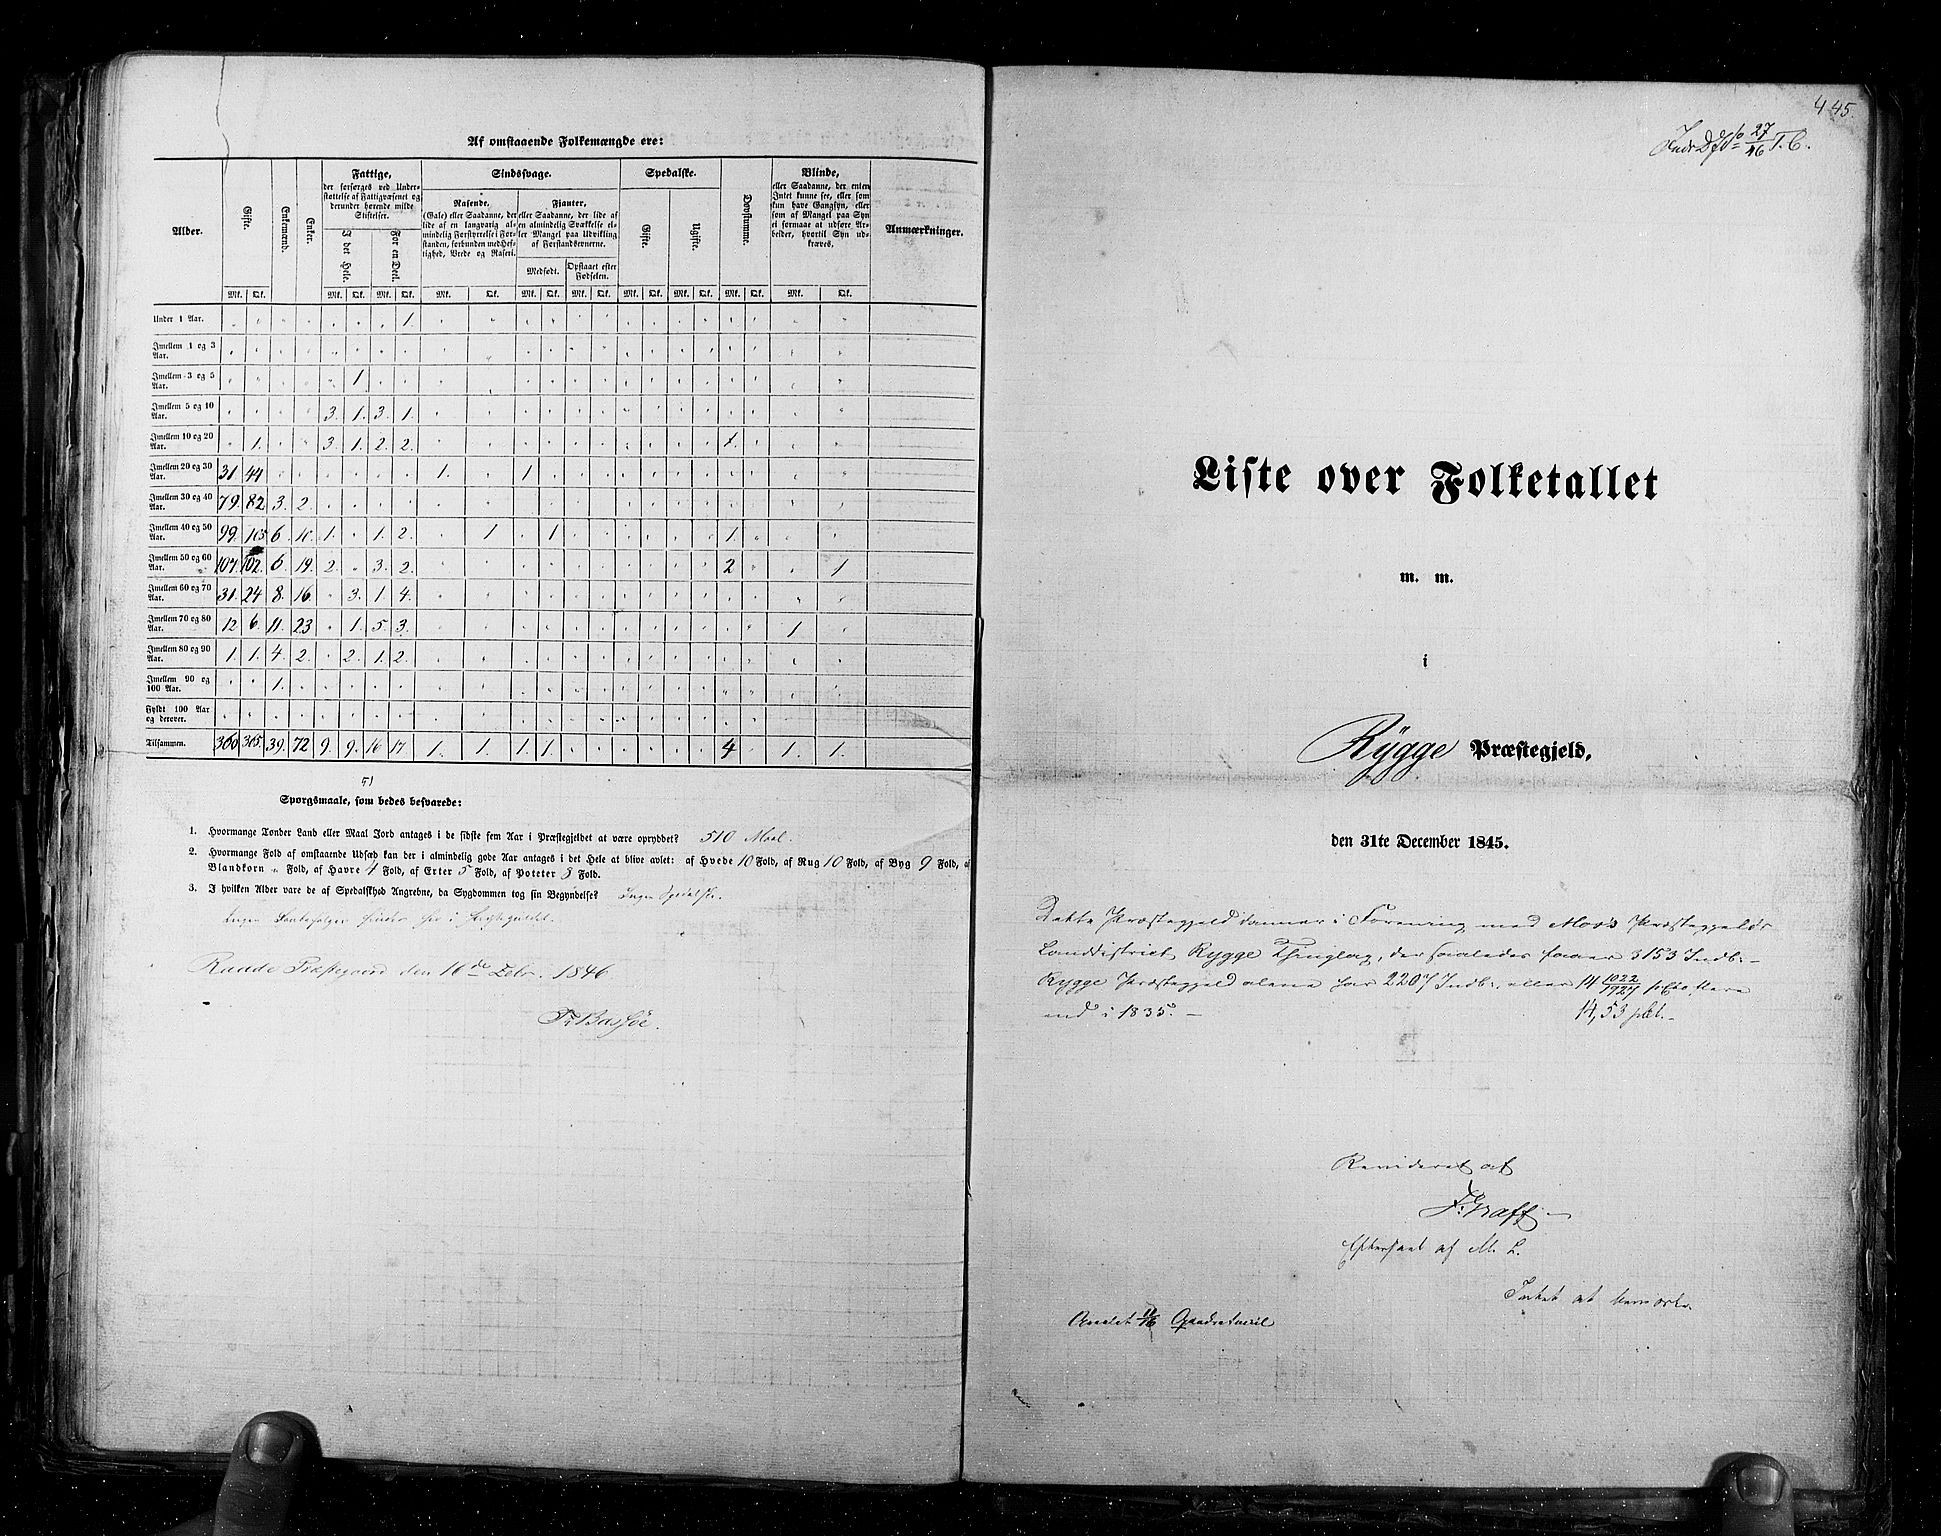 Af omstaaende Folkemængde ere:
Alder. Gifte. Enkemænd. Enker. Fattige, der forsørges ved Understøttelse af Fattigvæsenet og derunder hørende milde Stiftelser. Sindssvage. Spedalske. Døvstumme. Blinde, eller Saadanne, der enten Intet kunne see, eller som kun have Gangsyn, eller som af Mangel paa Syn ei formaae at udføre Arbeider, hvortil Syn udkræves. Anmærkninger.
I det Hele. For en Deel. Rasende, (Gale) eller Saadanne, der lide af en langvarig almindelig Forstyrrelse i Forstanden, forbunden med Heftighed, Vrede og Raseri. Fjanter, eller Saadanne, der lide af en almindelig Svækkelse eller Mangel paa Udvikling af Forstandsevnerne. Gifte. Ugifte.
Medfødt. Opstaaet efter Fødselen.
Mk. Qk. Mk. Qk. Mk. Qk. Mk. Qk. Mk. Qk. Mk. Qk. Mk. Qk. Mk. Qk. Mk. Qk. Mk. Qk.
Under 1 Aar. 1.
Imellem 1 og 3 Aar.
Imellem 3 og 5 Aar. 1
Imellem 5 og 10 Aar. 3. 1. 3. 1.
Imellem 10 og 20 Aar. 1. 3. 1. 2. 2. 1.
Imellem 20 og 30 Aar. 31. 44 1. 1
Imellem 30 og 40 Aar. 79. 82. 3. 2.
Imellem 40 og 50 Aar. 99. 105 6. 10. 1. 1. 2. 1 1 1.
Imellem 50 og 60 Aar. 107. 102. 6. 19. 2. 3. 2. 2 1
Imellem 60 og 70 Aar. 31. 24 8. 16. 3. 1. 4.
Imellem 70 og 80 Aar. 12 6. 11. 23 1. 5. 3. 1
Imellem 80 og 90 Aar. 1. 1. 4. 2. 2. 1. 2.
Imellem 90 og 100 Aar. 1.
Fyldt 100 Aar og derover.
Tilsammen. 360 365. 39. 72 9. 9. 16 17. 1. 1. 1. 1. 4 1. 1.
51
Spørgsmaale, som bedes besvarede:
1. Hvormange Tønder Land eller Maal Jord antages i de sidste fem Aar i Præstegjeldet at være opryddet? 510 Maal.
2. Hvormange Fold af omstaaende Udsæd kan der i almindelig gode Aar antages i det Hele at blive avlet: af Hvede 10 Fold, af Rug 10 Fold, af Byg 9 Fold, af
Blandkorn „ Fold, af Havre 4 Fold, af Erter 5 Fold, af Poteter 8 Fold.
3. I hvilken Alder vare de af Spedalskhed Angrebne, da Sygdommen tog sin Begyndelse? Ingen Spedalske.
Ingen findes her i Præstegieldet.
Raade Præstegaard den 16de Febr. 1846
Fr. Bassøe.
445.
27/46 T. C.
Liste over Folketallet
m. m.
i
Rÿgge Præstegjeld,
den 31te December 1845.
Dette Præstegjeld danner i Forening med Moss Præstegjelds
Landdistrict Rygge Thinglag, der saaledes haver 3153 Indb. –
Rygge Præstegjeld alene har 2207 Indb., eller 14 1022/1927 pCto. flere
end i 1835. – 14,53 pCt. –
Revideret af
F. Graff –
Efterseet af M. L.
Intet at bemærke.
Arealet 11/16 Quadratmiil